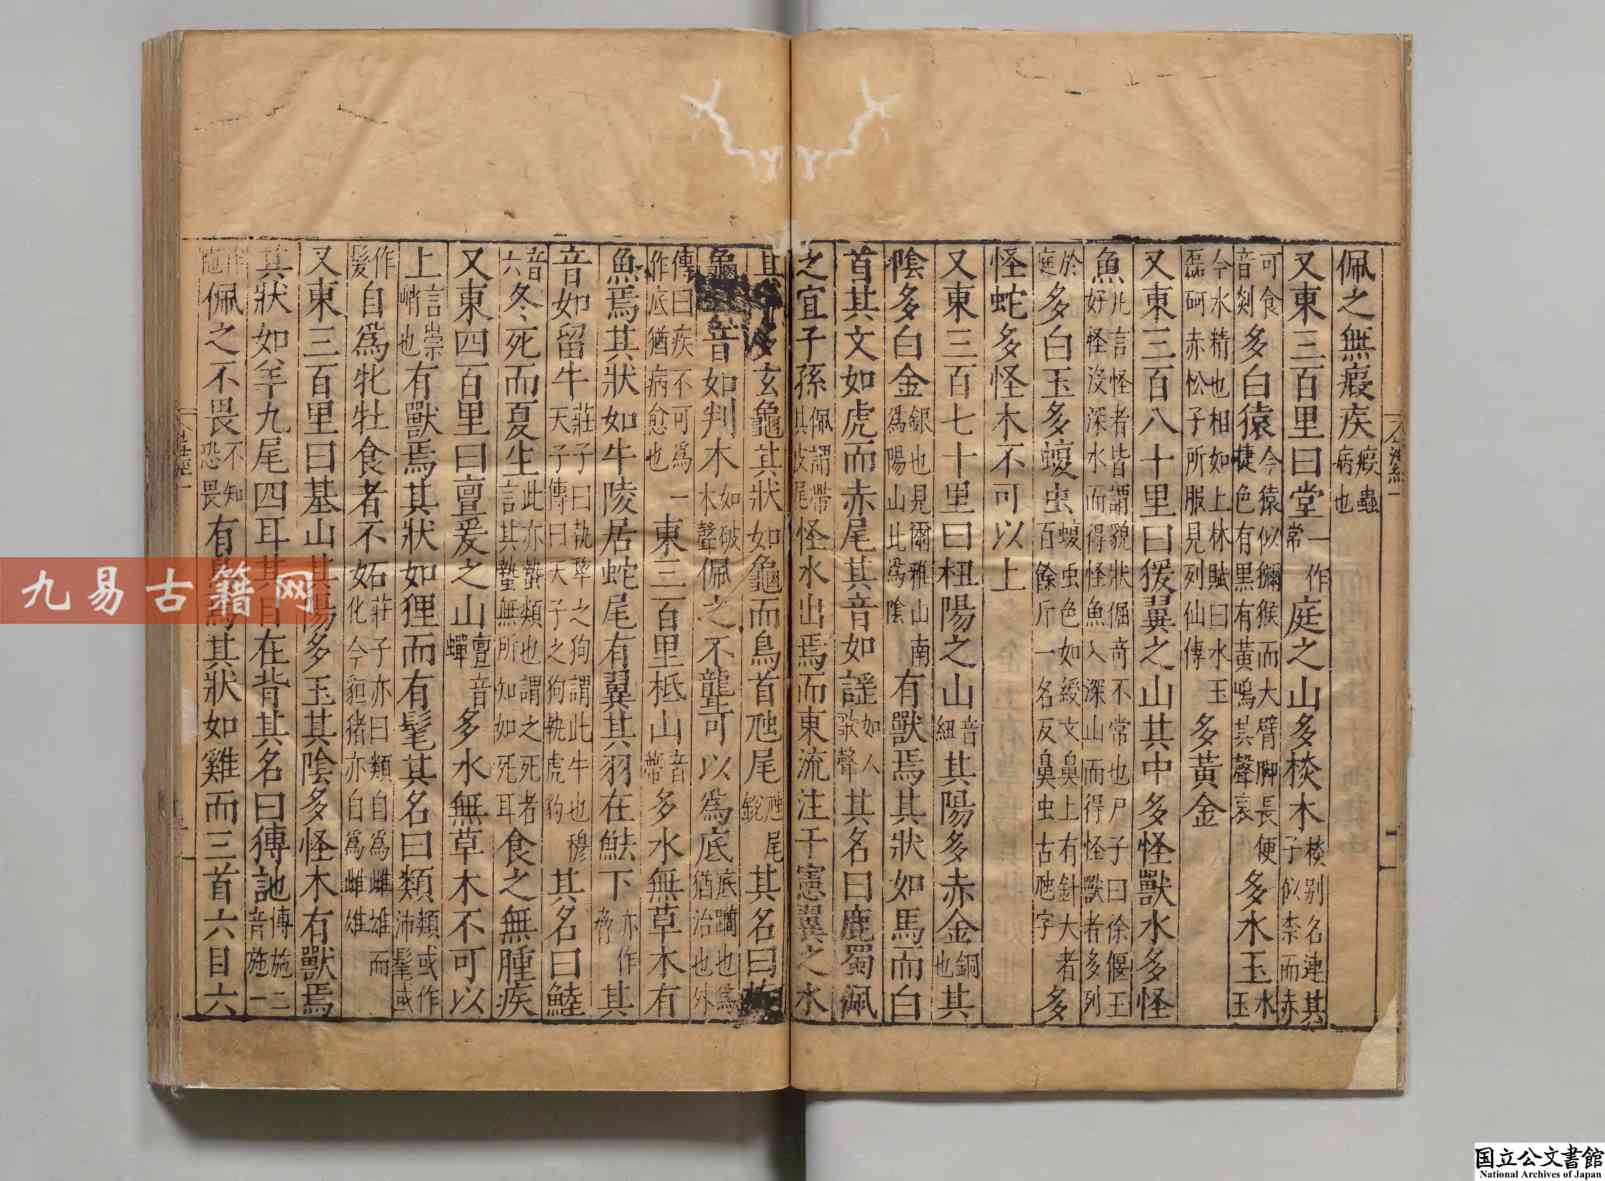 佩之無瘕疾瘕蟲病也
又東三百里曰堂一作常庭之山多棪木棪别名連其子似柰而赤
可食音剡多白猿今猿似獼猴而大臂脚長便捷色有黑有黃鳴其聲哀多水玉水玉
今水精也相如上林賦曰水玉磊砢赤松子所服見列仙傳多黃金
又東三百八十里曰猨翼之山其中多怪獸水多怪
魚凡言怪者皆謂貌狀倔奇不常也尸子曰徐偃王好怪没深水而得怪魚入深山而得怪獸者多列
於庭多白玉多蝮虫蝮虫色如綬文鼻上有針大者百餘斤一名反鼻虫古虺字多
怪蛇多怪木不可以上
又東三百七十里曰杻陽之山音紐其陽多赤金銅也其
陰多白金銀也見爾雅山南爲陽山北爲陰有獸焉其狀如馬而白
首其文如虎而赤尾其音如謡如人歌聲其名曰鹿蜀佩
之宜子孫佩謂帶其皮尾怪水出焉而東流注于憲翼之水
其多玄龜其狀如龜而鳥首虺尾虺尾銳其名曰
龜音如判木如破木聲佩之不聾可以爲底底躪也爲猶治也外
傳曰疾不可爲一作底猶病愈也東三百里柢山音帶多水無草木有
魚焉其狀如牛陵居蛇尾有翼其羽在魼下亦作脅其
音如留牛莊子曰執犂之狗謂此牛也穆天子傳曰天子之狗執虎豹其名曰鯥
音六冬死而夏生此亦蟄類也謂之死者言其蟄無所知如死耳食之無腫疾
又東四百里曰亶爰之山亶音蟬多水無草木不可以
上言崇峭也有獸焉其狀如狸而有髦其名曰類類或作沛髦或
作髮自爲牝牡食者不妬莊子亦曰類自爲雌雄而化今貆猪亦自爲雌雄
又東三百里曰基山其陽多玉其陰多怪木有獸焉
其狀如羊九尾四耳其目在背其名曰猼訑博施二音施一
作陁佩之不畏不知恐畏有焉其狀如雞而三首六目六
九易古籍网
国立公文書館
National Archives of Japan